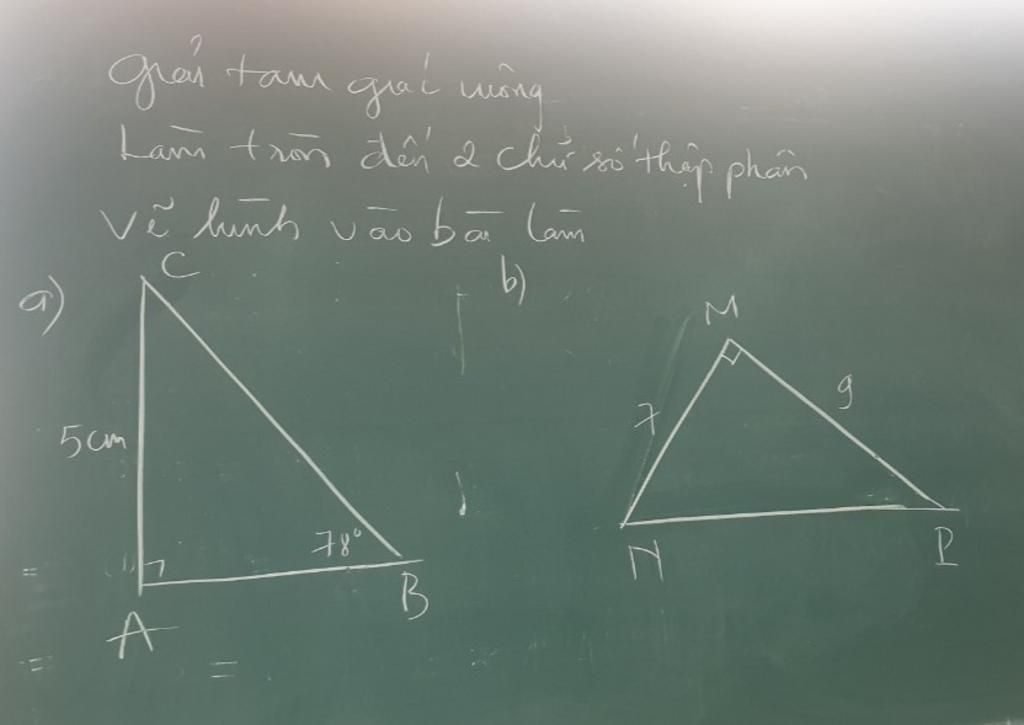 Giải tam giác vuông
Làm tròn đến 2 chữ số thập phân
Vẽ hình vào bài làm
a)
C
5cm
78°
A
B
b)
M
7
9
N
P